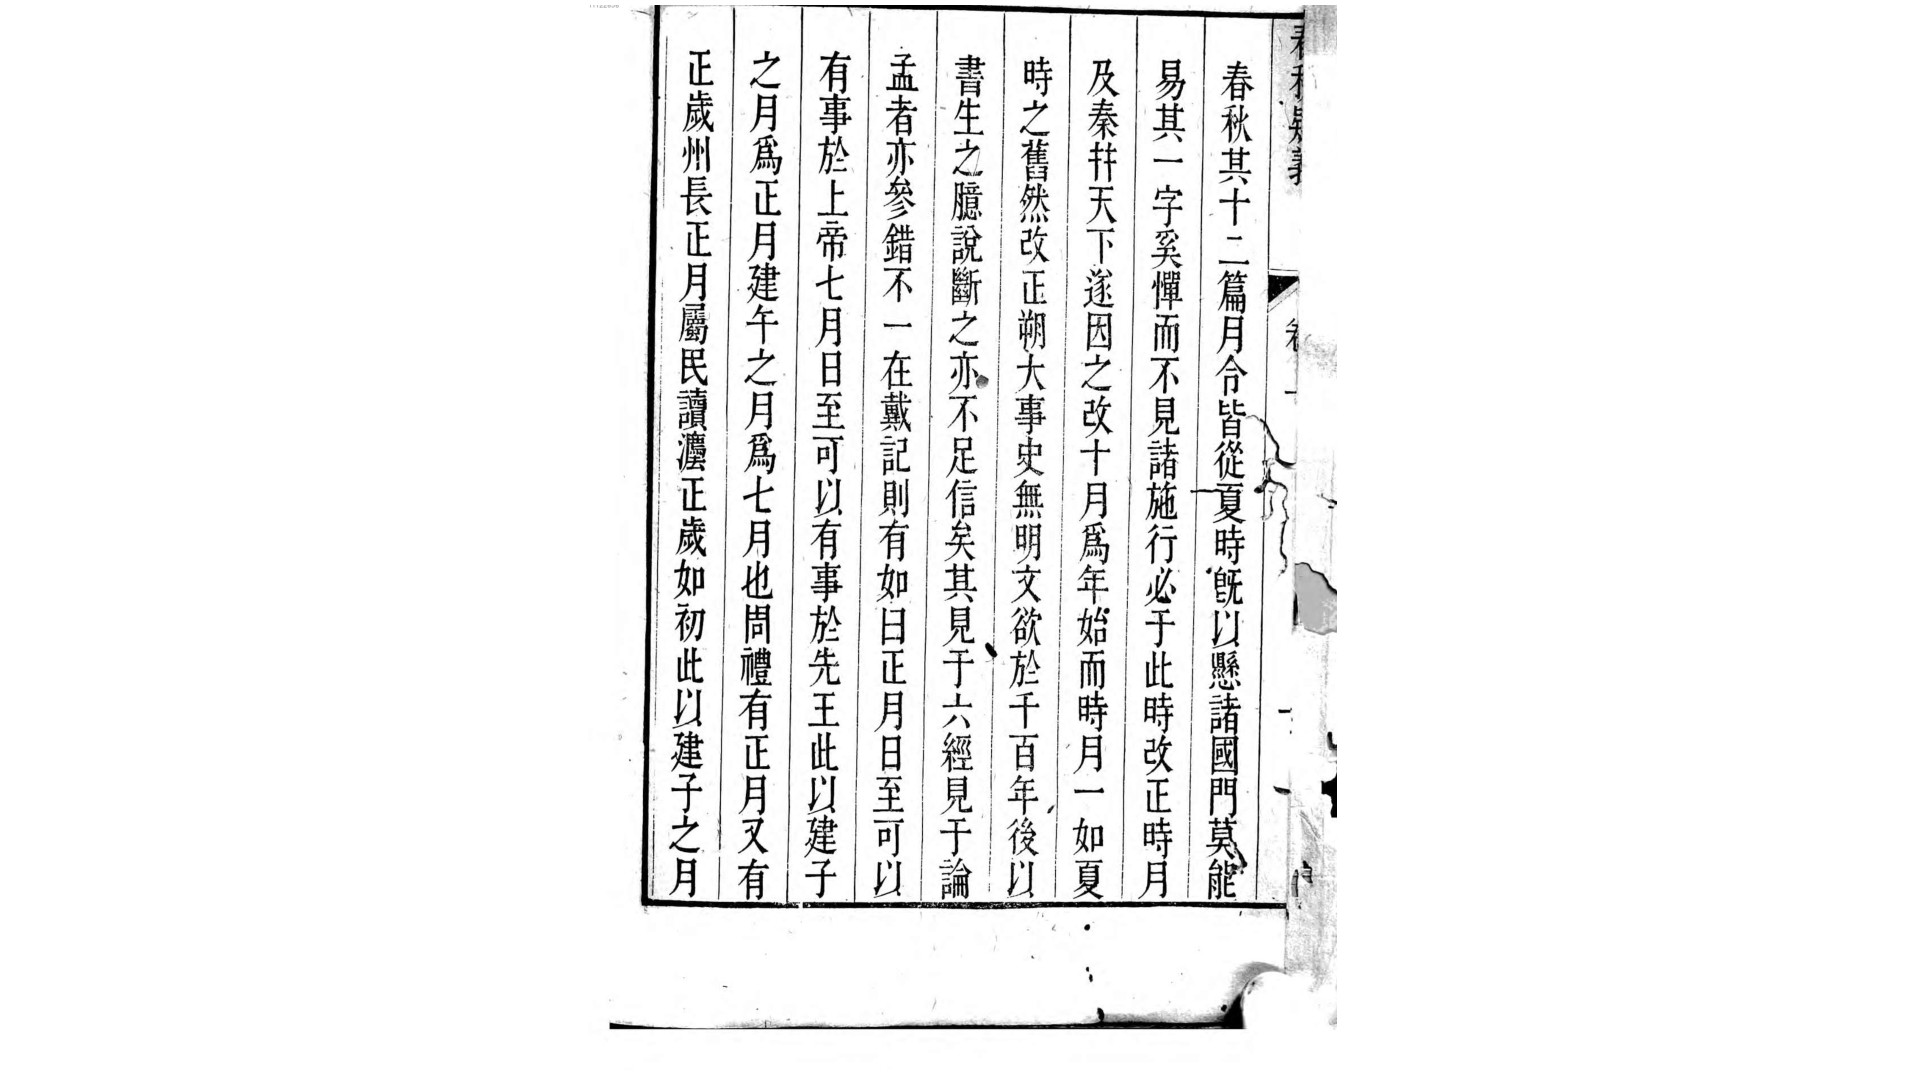 春秋其十二篇月令皆從夏時旣以懸諸國門莫能
易其一字奚憚而不見諸施行必于此時改正時月
及秦幷天下遂因之改十月爲年始而時月一如夏
時之舊然改正朔大事史無明文欲於千百年後以
書生之臆說斷之亦不足信矣其見于六經見于論
孟者亦參錯不一在戴記則有如曰正月日至可以
有事於上帝七月日至可以有事於先王此以建子
之月爲正月建午之月爲七月也周禮有正月又有
正歲州長正月屬民讀灋正歲如初此以建子之月